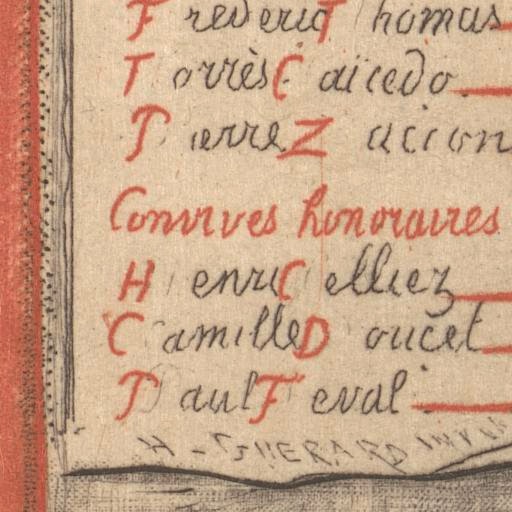 Frederic Thomas
Torrès Caicedo
Pierre Zaccon
Convives honoraires
Henri Celliez
Camille Doucet
Paul Feval
H - GUERARD INV